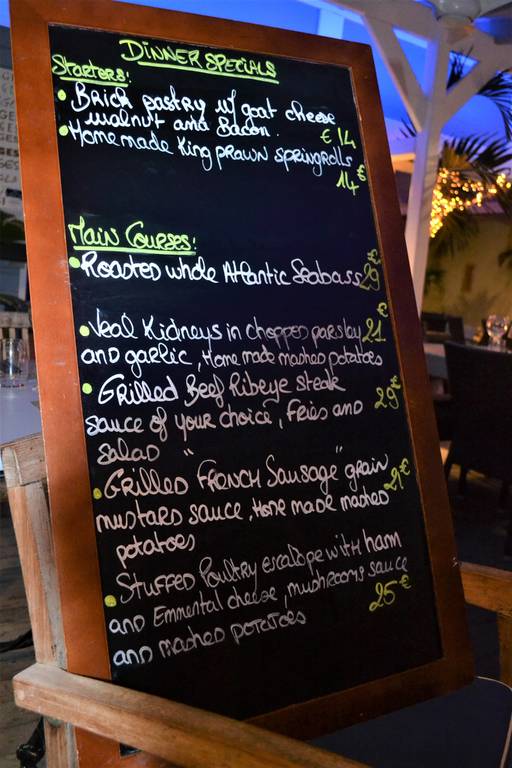 DINNER SPECIALS
Starters:
• Brick pastry w/ goat cheese
walnut and Bacon. € 14
• Homemade King prawn springrolls
14 €
Main Courses:
• Roasted whole Atlantic Seabass 29 €
• Veal Kidneys in chopped parsley 21 €
and garlic, Home made mashed potatoes
• Grilled Beef Ribeye steak
sauce of your choice, Fries and 29 €
salad
• Grilled "FRENCH Sausage" grain
mustard sauce, Home made mashed 21 €
potatoes
• Stuffed Poultry escalope with ham
and Emmental cheese, mushrooms sauce
and mashed potatoes 25 €